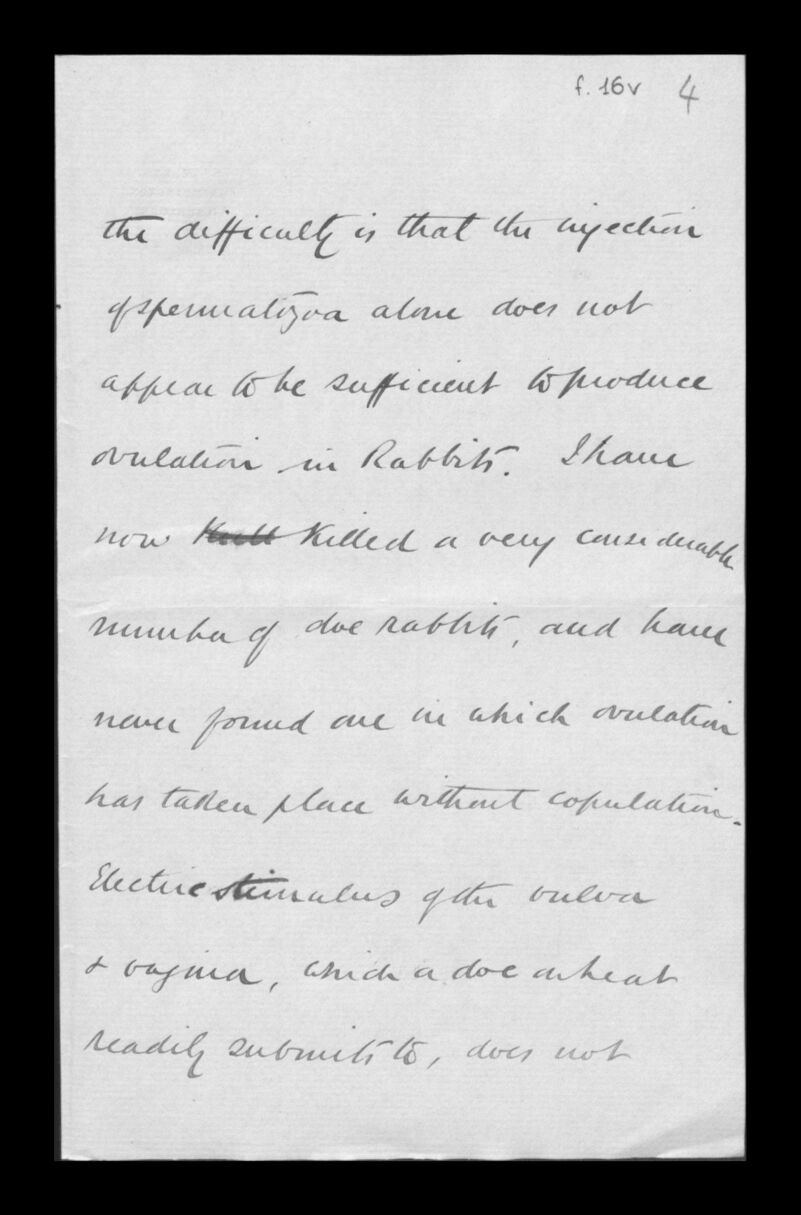 f. 16v 4
the difficulty is that the injection
of spermatozoa alone does not
appear to be sufficient to produce
ovulation in Rabbits. I have
now killed a very considerable
number of doe rabbits, and have
never found one in which ovulation
has taken place without copulation.
Electric stimulus of the vulva
& vagina, which a doe on heat
readily submits to, does not